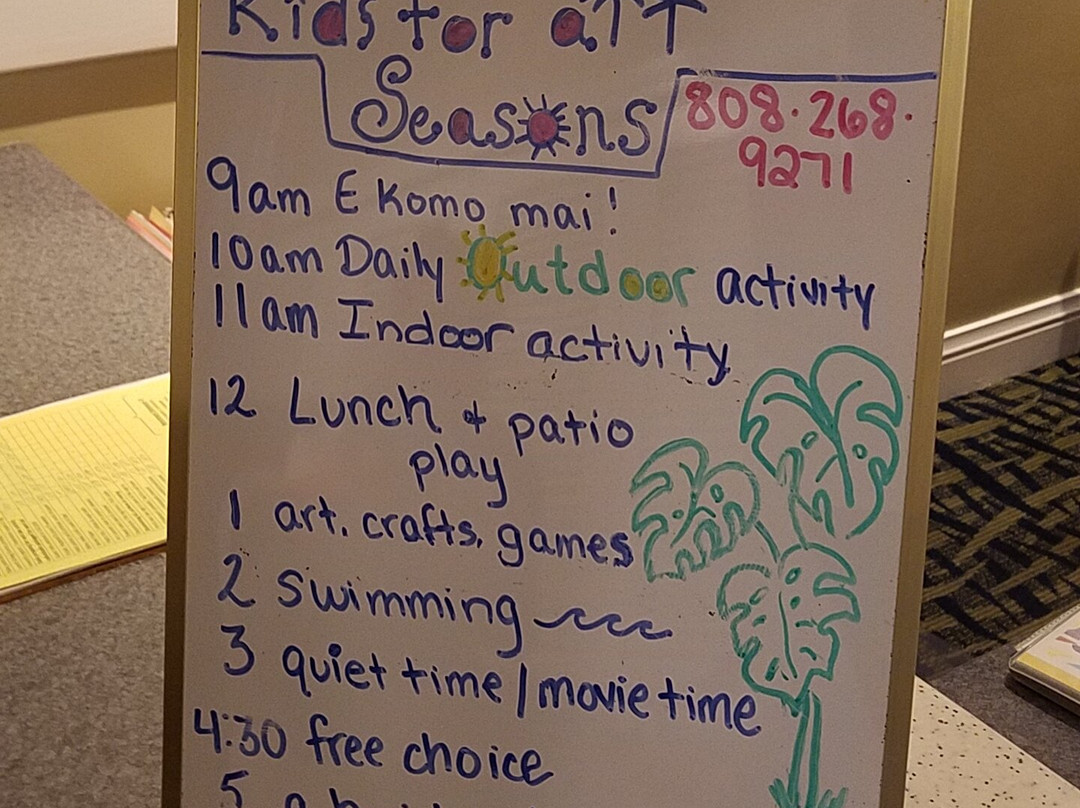 Kids for all
Seasons
808·268·
9271
9am E Komo mai!
10am Daily Outdoor activity
11am Indoor activity
12 Lunch & patio
play
1 art, crafts, games
2 swimming
3 quiet time / movie time
4:30 free choice
5